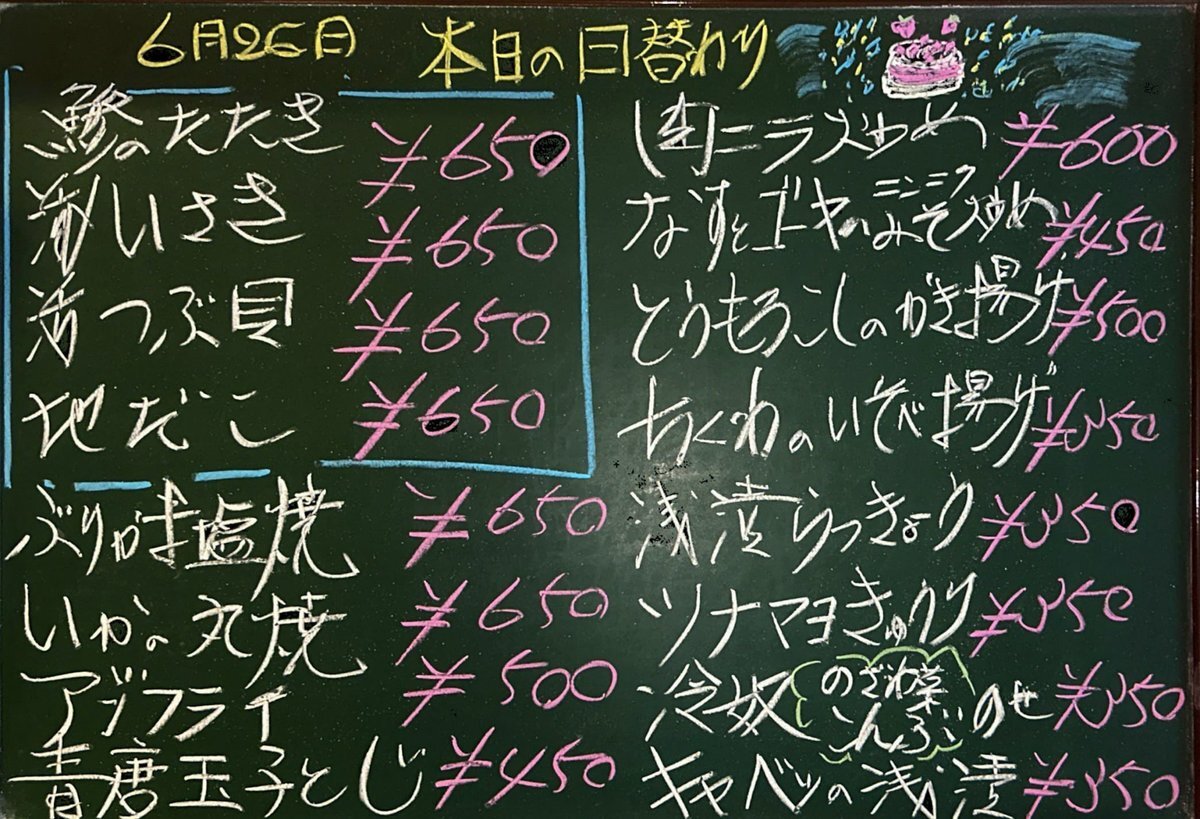 6月26日 本日の日替わり
鯵のたたき ¥650
いさき ¥650
活つぶ貝 ¥650
地だこ ¥650
ぶりかま塩焼 ¥650
いかの丸焼 ¥650
アジフライ ¥500
青唐玉子とじ ¥450
肉ニラ炒め ¥600
なすとゴーヤのニンニクみそ炒め ¥450
とうもろこしのかき揚げ ¥500
ちくわのいそべ揚げ ¥350
浅漬らっきょう ¥350
ツナマヨきゅうり ¥350
冷奴 のざわ菜こんぶ のせ ¥350
キャベツの浅漬 ¥350